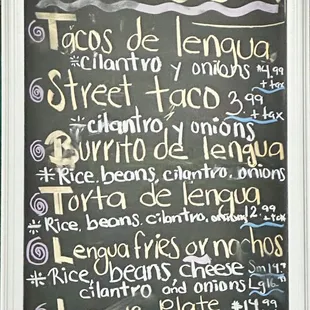 Tacos de lengua
*cilantro y onions $4.99
+tax
Street taco 3.99
+tax
*cilantro y onions
Burrito de lengua
*Rice, beans, cilantro, onions
Torta de lengua
*Rice, beans, cilantro, onions 12.99
+tax
Lengua fries or nachos
*Rice, beans, cheese Sm 14.
cilantro and onions Lg 16.
Plate $14.99